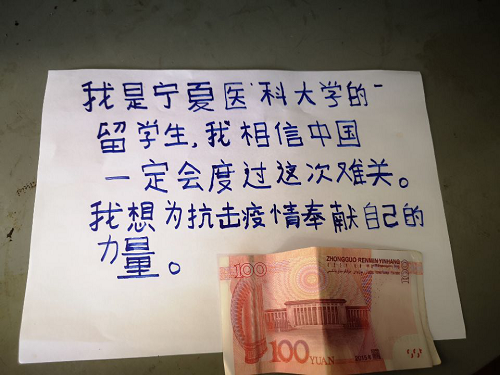 我是宁夏医科大学的一
留学生,我相信中国
一定会度过这次难关。
我想为抗击疫情奉献自己的
力量。
100
ZHONGGUO RENMIN YINHANG
100
100 YUAN